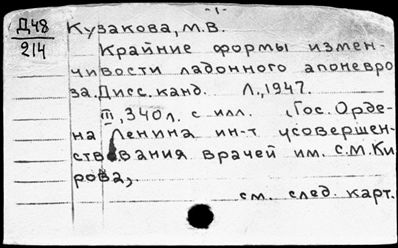 -1-
Д48 Кузакова, М.В.
214
Крайние формы измен-
чивости ладонного апоневро
за. Дисс. канд. Л., 1947.
III, 340л. с илл. (Гос. Орде-
на Ленина ин-т усовершен-
ствования врачей им. С.М. Ки
рова,
см. след. карт.